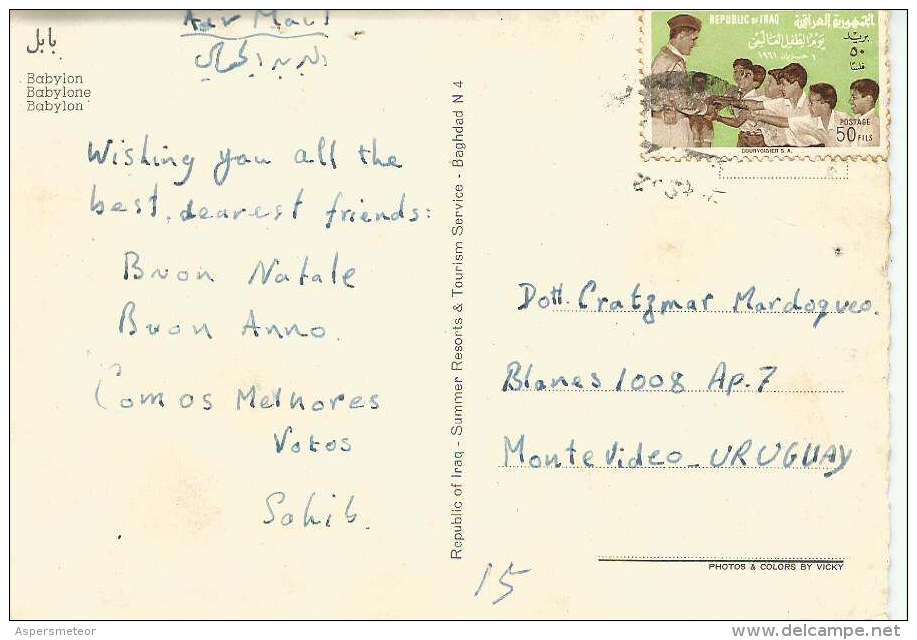 Air Mail
البريد الجوي
بابل
Babylon
Babylone
Babylon
Wishing you all the
best, dearest friends:
Buon Natale
Buon Anno.
Com os Melhores
Votos
Sahib.
Republic of Iraq - Summer Resorts & Tourism Service - Baghdad N 4
REPUBLIC OF IRAQ
الجمهورية العراقية
يوم الطفل العالمي
بريد
٥٠
فلسا
POSTAGE
50 FILS
COURVOISIER S. A.
Dott. Cratzmar Mardoqueo.
Blanes 1008 Ap. 7
Montevideo - URUGUAY
15
PHOTOS & COLORS BY VICKY
Aspersmeteor
delcampe.net